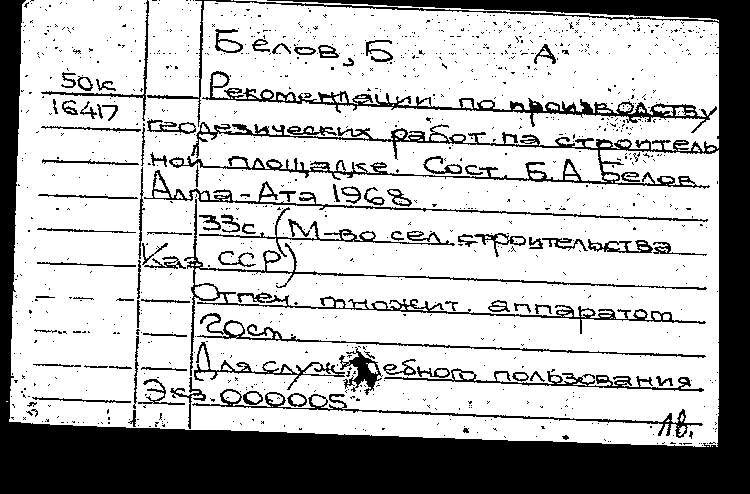 Белов, Б А
50к
16417
Рекомендации по производству
геодезических работ на строитель
ной площадке. Сост. Б.А Белов
Алма-Ата, 1968
33с. (М-во сел. строительства
Каз. ССР)
Отпеч. множит. аппаратом
Для служебного пользования
Экз. 000005
1в.